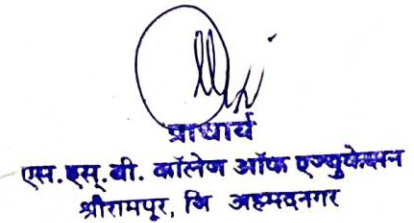 प्राचार्य
एस.एस्.बी. कॉलेज ऑफ एज्युकेशन
श्रीरामपूर, जि अहमदनगर